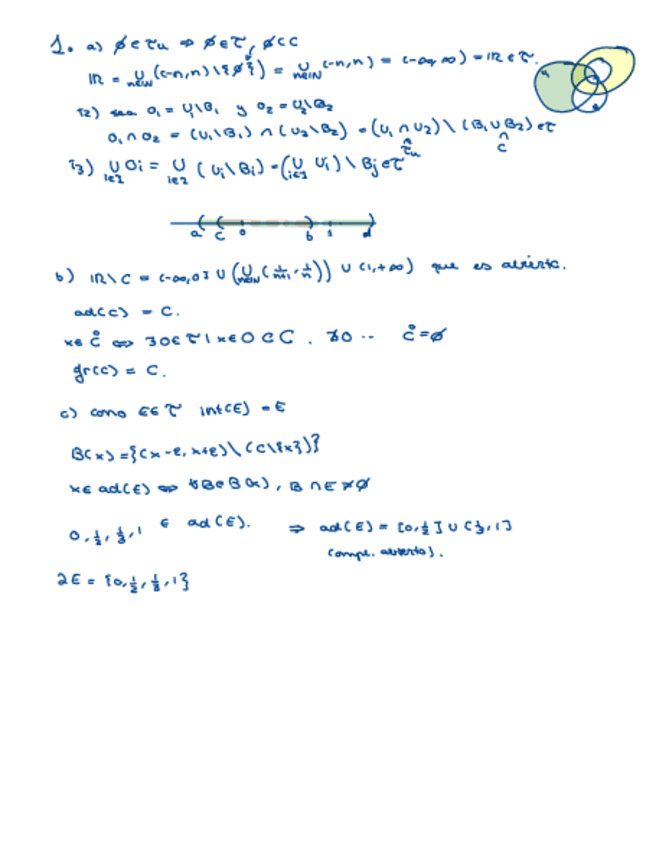 1. a) ∅ ∈ τu ⇒ ∅ ∈ τ, ∅ ⊂ C
IR = ∪n∈IN ((-n,n) \ {∅}) = ∪n∈IN (-n,n) = (-∞,∞) = IR ∈ τ.
τ2) sea O1 = U1\B1 y O2 = U2\B2
O1 ∩ O2 = (U1\B1) ∩ (U2\B2) = (U1 ∩ U2) \ (B1 ∪ B2) ∈ τ
∩ τu ∩ C
τ3) ∪i∈I Oi = ∪i∈I (Ui\Bi) = (∪i∈I Ui) \ Bj ∈ τ
a c 0 b 1 d
b) IR\C = (-∞,0] ∪ (∪n∈IN (1/n+1, 1/n)) ∪ (1,+∞) que es abierto.
ad(C) = C.
x ∈ C̊ ⇔ ∃O ∈ τ | x ∈ O ⊂ C. ∄O .. C̊ = ∅
fr(C) = C.
c) como E ∈ τ int(E) = E
B(x) = {(x-ε, x+ε) \ (C\{x})}
x ∈ ad(E) ⇔ ∀B ∈ B(x), B ∩ E ≠ ∅
0, 1/2, 1/3, 1 ∈ ad(E). ⇒ ad(E) = [0, 1/2] ∪ [1/3, 1]
(compl. abierto).
∂E = {0, 1/2, 1/3, 1}